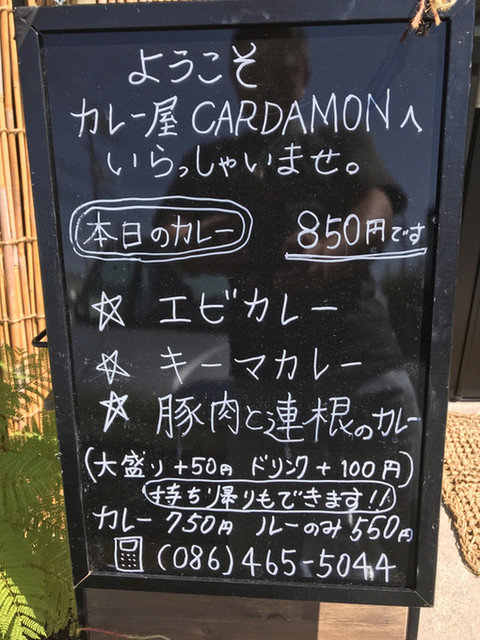 ようこそ
カレー屋 CARDAMON へ
いらっしゃいませ。
本日のカレー 850円です
☆ エビカレー
☆ キーマカレー
☆ 豚肉と連根のカレー
(大盛り+50円 ドリンク+100円)
持ち帰りもできます!!
カレー 750円 ルーのみ 550円
(086)465-5044